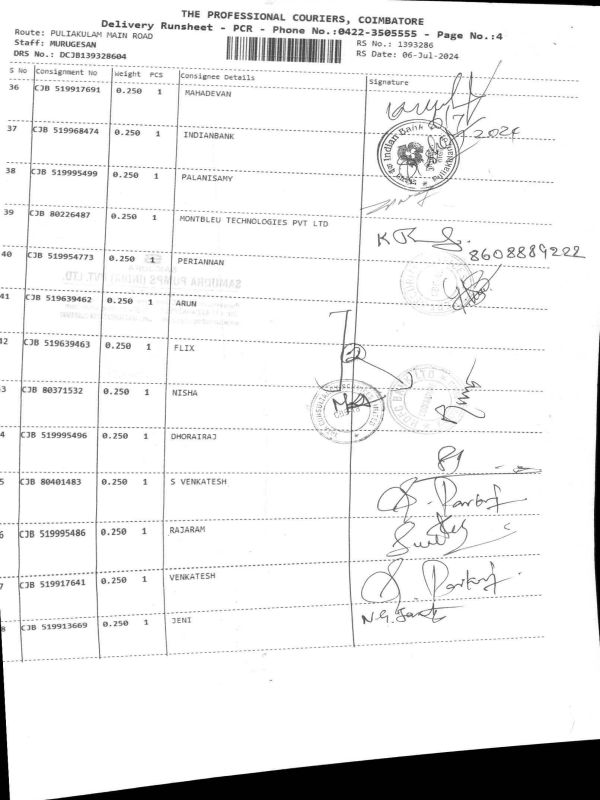 THE PROFESSIONAL COURIERS, COIMBATORE
Delivery Runsheet - PCR - Phone No.:0422-3505555 - Page No.:4
Route: PULIAKULAM MAIN ROAD
Staff: MURUGESAN
DRS No.: DCJB139328604
RS No.: 1393286
RS Date: 06-Jul-2024
S No Consignment No Weight PCS Consignee Details Signature
36 CJB 519917691 0.250 1 MAHADEVAN
37 CJB 519968474 0.250 1 INDIANBANK
2024
Indian Bank
38 CJB 519995499 0.250 1 PALANISAMY
39 CJB 80226487 0.250 1 MONTBLEU TECHNOLOGIES PVT LTD
8608889222
40 CJB 519954773 0.250 1 PERIANNAN
41 CJB 519639462 0.250 1 ARUN
42 CJB 519639463 0.250 1 FLIX
3 CJB 80371532 0.250 1 NISHA
4 CJB 519995496 0.250 1 DHORAIRAJ
5 CJB 80401483 0.250 1 S VENKATESH
6 CJB 519995486 0.250 1 RAJARAM
7 CJB 519917641 0.250 1 VENKATESH
8 CJB 519913669 0.250 1 JENI